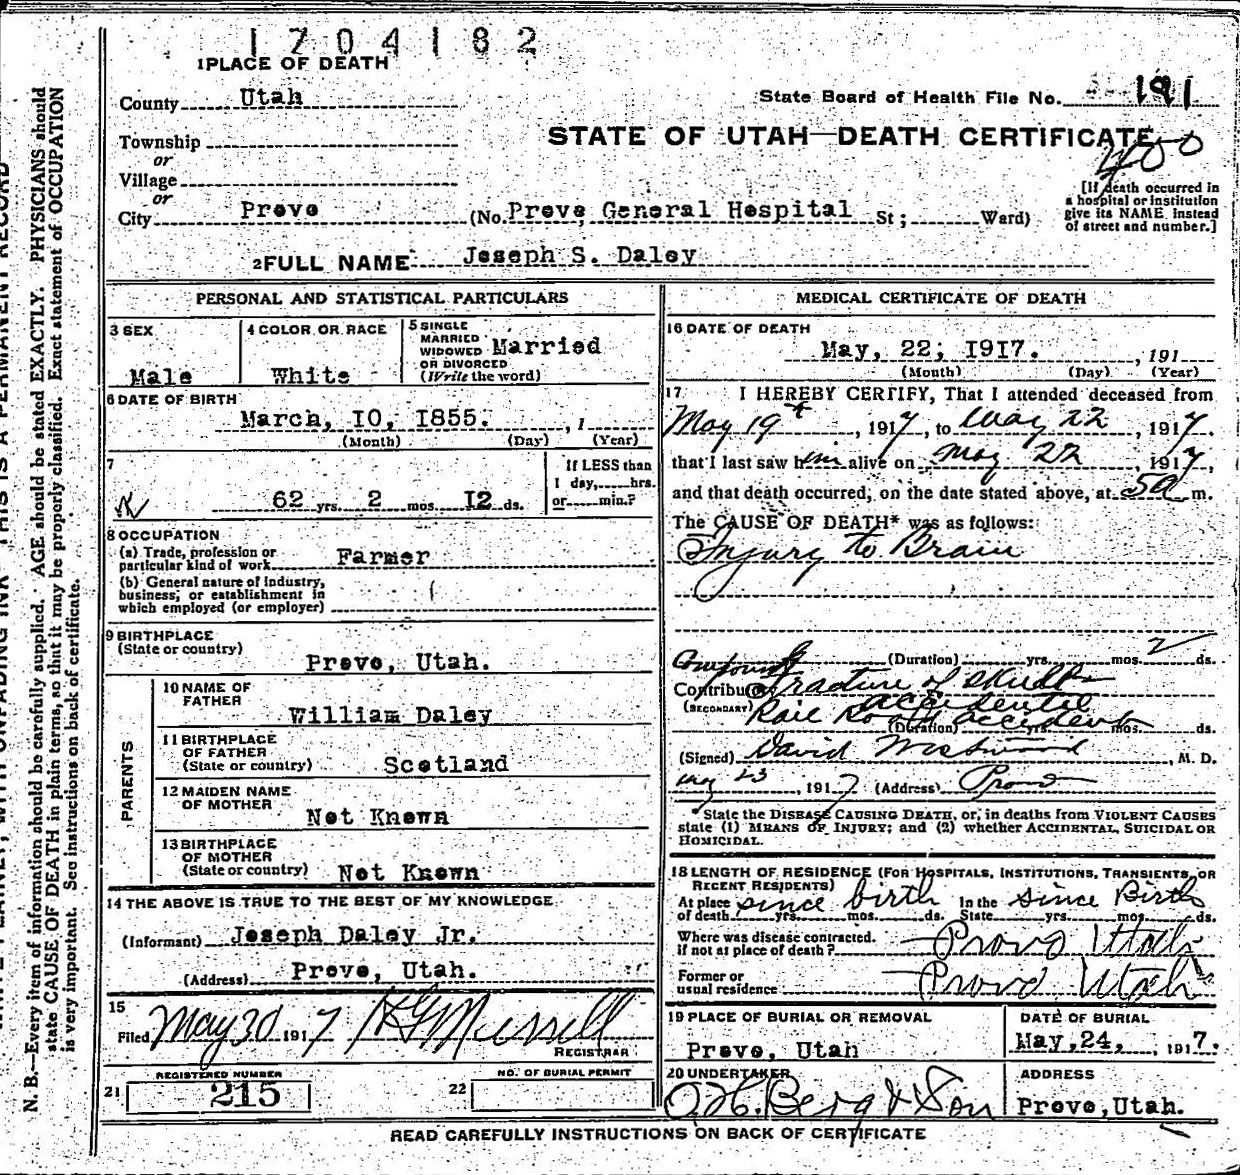 1704182
1 PLACE OF DEATH
County Utah
State Board of Health File No. 191
Township
or
Village
or
STATE OF UTAH—DEATH CERTIFICATE
400
[If death occurred in
a hospital or institution
give its NAME instead
of street and number.]
City Prove (No. Prove, General Hospital St; Ward)
2 FULL NAME Joseph S. Daley
PERSONAL AND STATISTICAL PARTICULARS
3 SEX
Male
4 COLOR OR RACE
White
5 SINGLE
MARRIED
WIDOWED
OR DIVORCED
(Write the word)
Married
6 DATE OF BIRTH
March, IO, I855. , 1
(Month) (Day) (Year)
7
62 yrs. 2 mos. I2 ds.
If LESS than
1 day, hrs.
or min.?
8 OCCUPATION
(a) Trade, profession or
particular kind of work Farmer
(b) General nature of industry,
business, or establishment in
which employed (or employer)
9 BIRTHPLACE
(State or country)
Prove, Utah.
PARENTS
10 NAME OF
FATHER
William Daley
11 BIRTHPLACE
OF FATHER
(State or country) Scotland
12 MAIDEN NAME
OF MOTHER
Not Known
13 BIRTHPLACE
OF MOTHER
(State or country) Not Known
14 THE ABOVE IS TRUE TO THE BEST OF MY KNOWLEDGE
(Informant) Joseph Daley Jr.
(Address) Prove, Utah.
15
Filed May 30 1917
REGISTRAR
REGISTERED NUMBER
21 215
NO. OF BURIAL PERMIT
22
MEDICAL CERTIFICATE OF DEATH
16 DATE OF DEATH
May, 22; I9I7. , 191
(Month) (Day) (Year)
17 I HEREBY CERTIFY, That I attended deceased from
May 19th, 1917, to May 22, 1917.
that I last saw him alive on May 22, 1917,
and that death occurred, on the date stated above, at 5a m.
The CAUSE OF DEATH* was as follows:
Injury to Brain
(Duration) yrs. mos. 2 ds.
Compound
Contributory Fracture of skull
(SECONDARY) accidental
Rail Road accident
(Duration) yrs. mos. ds.
(Signed) David Westwood, M. D.
May 23, 1917 (Address) Provo
*State the DISEASE CAUSING DEATH, or, in deaths from VIOLENT CAUSES
state (1) MEANS OF INJURY; and (2) whether ACCIDENTAL, SUICIDAL OR
HOMICIDAL.
18 LENGTH OF RESIDENCE (FOR HOSPITALS, INSTITUTIONS, TRANSIENTS, OR
RECENT RESIDENTS)
At place since birth In the since Birth
of death yrs. mos. ds. State yrs. mos. ds.
Where was disease contracted.
if not at place of death? Provo Utah
Former or
usual residence Provo Utah
19 PLACE OF BURIAL OR REMOVAL
Prove, Utah
DATE OF BURIAL
May, 24, , 1917.
20 UNDERTAKER
Berg & Son
ADDRESS
Prove, Utah.
READ CAREFULLY INSTRUCTIONS ON BACK OF CERTIFICATE
N. B.—Every item of information should be carefully supplied. AGE should be stated EXACTLY. PHYSICIANS should
state CAUSE OF DEATH in plain terms, so that it may be properly classified. Exact statement of OCCUPATION
is very important. See instructions on back of certificate.